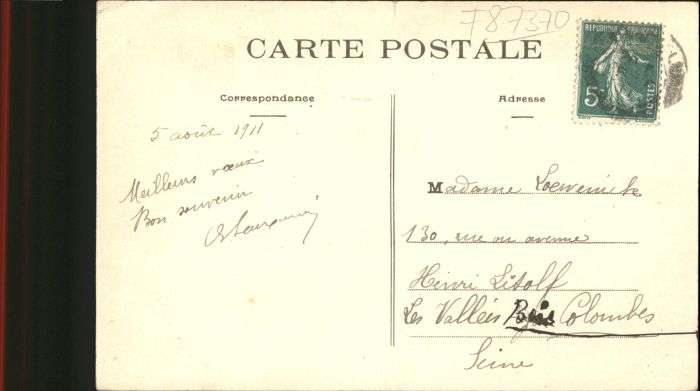 F87370
CARTE POSTALE
Correspondance
Adresse
REPUBLIQUE FRANCAISE
5
POSTES
5 août 1911
Meilleurs vœux
Bon souvenir
Madame Loewenick
130, rue ou avenue
Henri Litolf
Les Vallées Bois Colombes
Seine